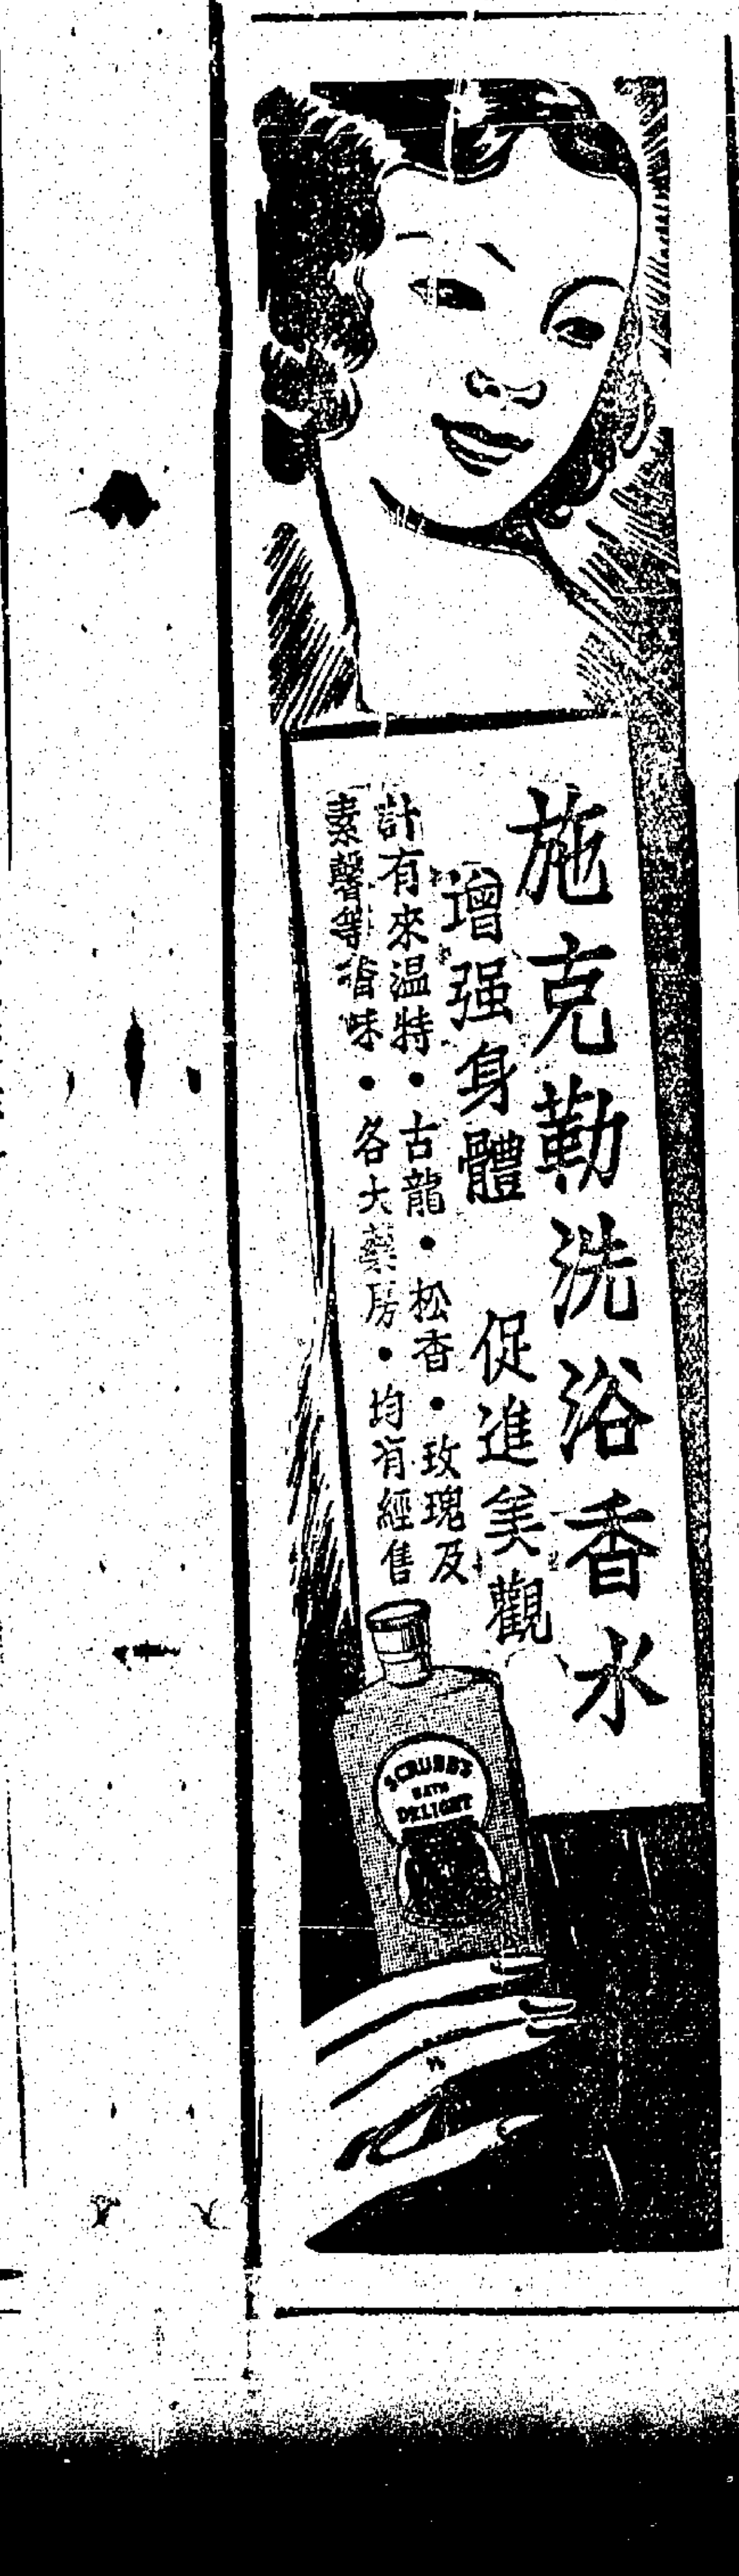 施克勒洗浴香水
增强身體 促進美觀
計有來温特・古龍・松香・玫瑰及
素馨等香味・各大藥房・均有經售
SCRUBB'S
BATH
DELIGHT